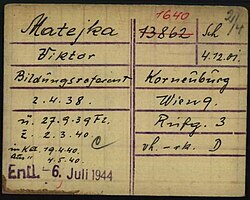 1640 21/4
Matejka 13862 Sch
Viktor 4.12.01.
Bildungsreferent Korneuburg
2.4.38. Wien
ü. 27.9.39 Fl. Rufg. 3
z. 2.3.40. vh. - rk. D
in Kdo 19.4.40. C
4.5.40.
Entl. -6. Juli 1944